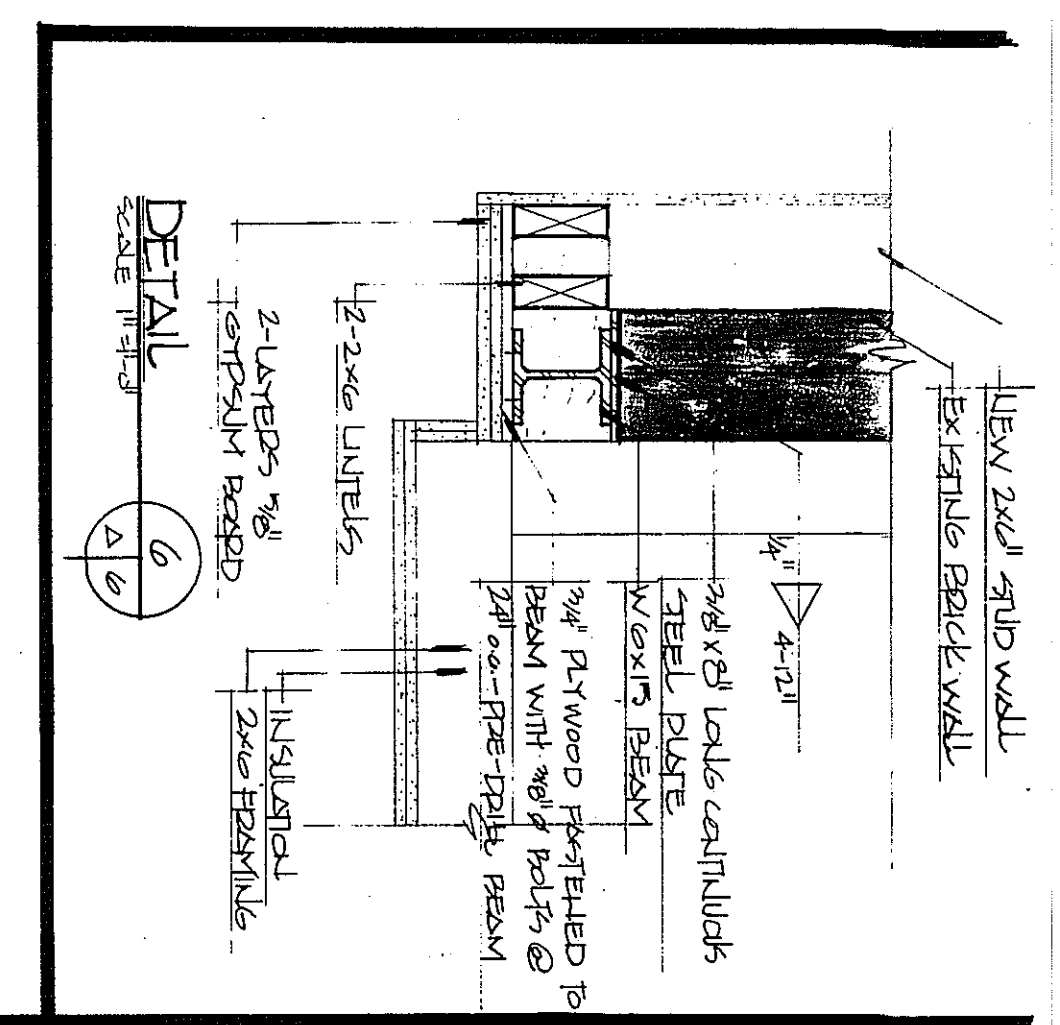 NEW 2x6" STUD WALL
EXISTING BRICK WALL
1/4" 4-12"
3/8" x 8" LONG CONTINUOUS
STEEL PLATE
W 6x15 BEAM
3/4" PLYWOOD FASTENED TO
BEAM WITH 3/8" Ø BOLTS @
24" o.c. - PRE-DRILL BEAM
INSULATION
2x6 FRAMING
2-2x6 LINTELS
2-LAYERS 5/8"
GYPSUM BOARD
DETAIL
SCALE 1"=1'-0"
6
A 6